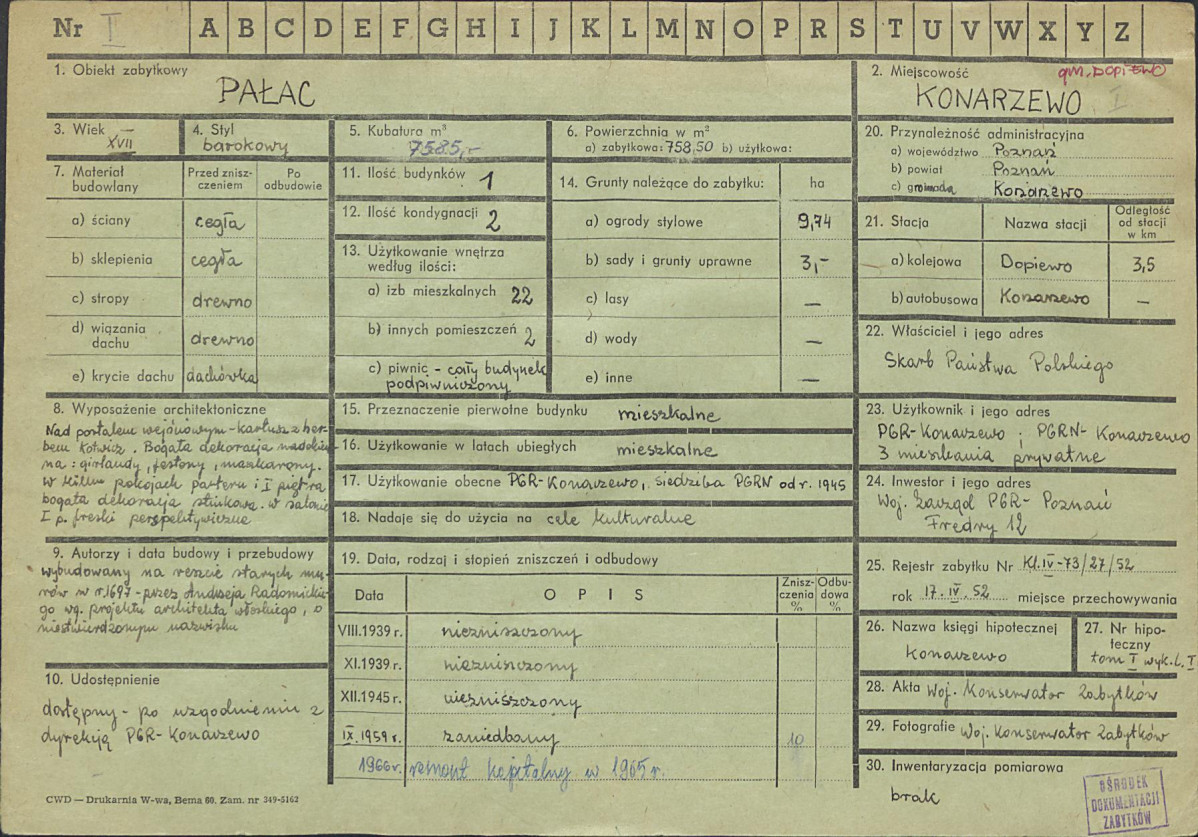 Nr I A B C D E F G H I J K L M N O P R S T U V W X Y Z
1. Obiekt zabytkowy
PAŁAC
2. Miejscowość
gm. DOPIEWO
KONARZEWO I
3. Wiek
XVII
4. Styl
barokowy
5. Kubatura m³
7585,-
6. Powierzchnia w m²
a) zabytkowa: 758,50 b) użytkowa:
7. Materiał budowlany
Przed zniszczeniem
Po odbudowie
a) ściany cegła
b) sklepienia cegła
c) stropy drewno
d) wiązania dachu drewno
e) krycie dachu dachówka
8. Wyposażenie architektoniczne
Nad portalem wejściowym - kartusz z her-
bem Kotwicz. Bogata dekoracja nadokien-
na: girlandy, festony, maszkarony.
w kilku pokojach parteru i I piętra
bogata dekoracja stiukowa. w salonie
I p. freski perspektywiczne
9. Autorzy i data budowy i przebudowy
wybudowany na reszcie starych mu-
rów w r. 1697 - przez Andrzeja Radomickie-
go wg. projektu architekta włoskiego, o
niestwierdzonym nazwisku
10. Udostępnienie
dostępny - po uzgodnieniu z
dyrekcją PGR-Konarzewo
11. Ilość budynków 1
12. Ilość kondygnacji 2
13. Użytkowanie wnętrza
według ilości:
a) izb mieszkalnych 22
b) innych pomieszczeń 2
c) piwnic - cały budynek
podpiwniczony
14. Grunty należące do zabytku: ha
a) ogrody stylowe 9,74
b) sady i grunty uprawne 3,-
c) lasy —
d) wody —
e) inne —
15. Przeznaczenie pierwotne budynku mieszkalne
16. Użytkowanie w latach ubiegłych mieszkalne
17. Użytkowanie obecne PGR-Konarzewo, siedziba PGRN od r. 1945
18. Nadaje się do użycia na cele kulturalne
19. Data, rodzaj i stopień zniszczeń i odbudowy
Data
OPIS
Zniszczenia %
Odbudowa %
VIII.1939 r. niezniszczony
XI.1939 r. niezniszczony
XII.1945 r. niezniszczony
IX.1959 r. zaniedbany 10
1966 r. remont kapitalny w 1965 r.
20. Przynależność administracyjna
a) województwo Poznań
b) powiat Poznań
c) gromada Konarzewo
21. Stacja
Nazwa stacji
Odległość od stacji w km
a) kolejowa Dopiewo 3,5
b) autobusowa Konarzewo —
22. Właściciel i jego adres
Skarb Państwa Polskiego
23. Użytkownik i jego adres
PGR-Konarzewo i PGRN-Konarzewo
3 mieszkania prywatne
24. Inwestor i jego adres
Woj. Zarząd PGR - Poznań
Fredry 12
25. Rejestr zabytku Nr Kl.IV-73/27/52
rok 17.IV.52 miejsce przechowywania
26. Nazwa księgi hipotecznej
Konarzewo
27. Nr hipoteczny
tom I wyk. L. I
28. Akta Woj. Konserwator Zabytków
29. Fotografie Woj. Konserwator Zabytków
30. Inwentaryzacja pomiarowa
brak
OŚRODEK
DOKUMENTACJI
ZABYTKÓW
CWD — Drukarnia W-wa, Bema 60. Zam. nr 349-5162